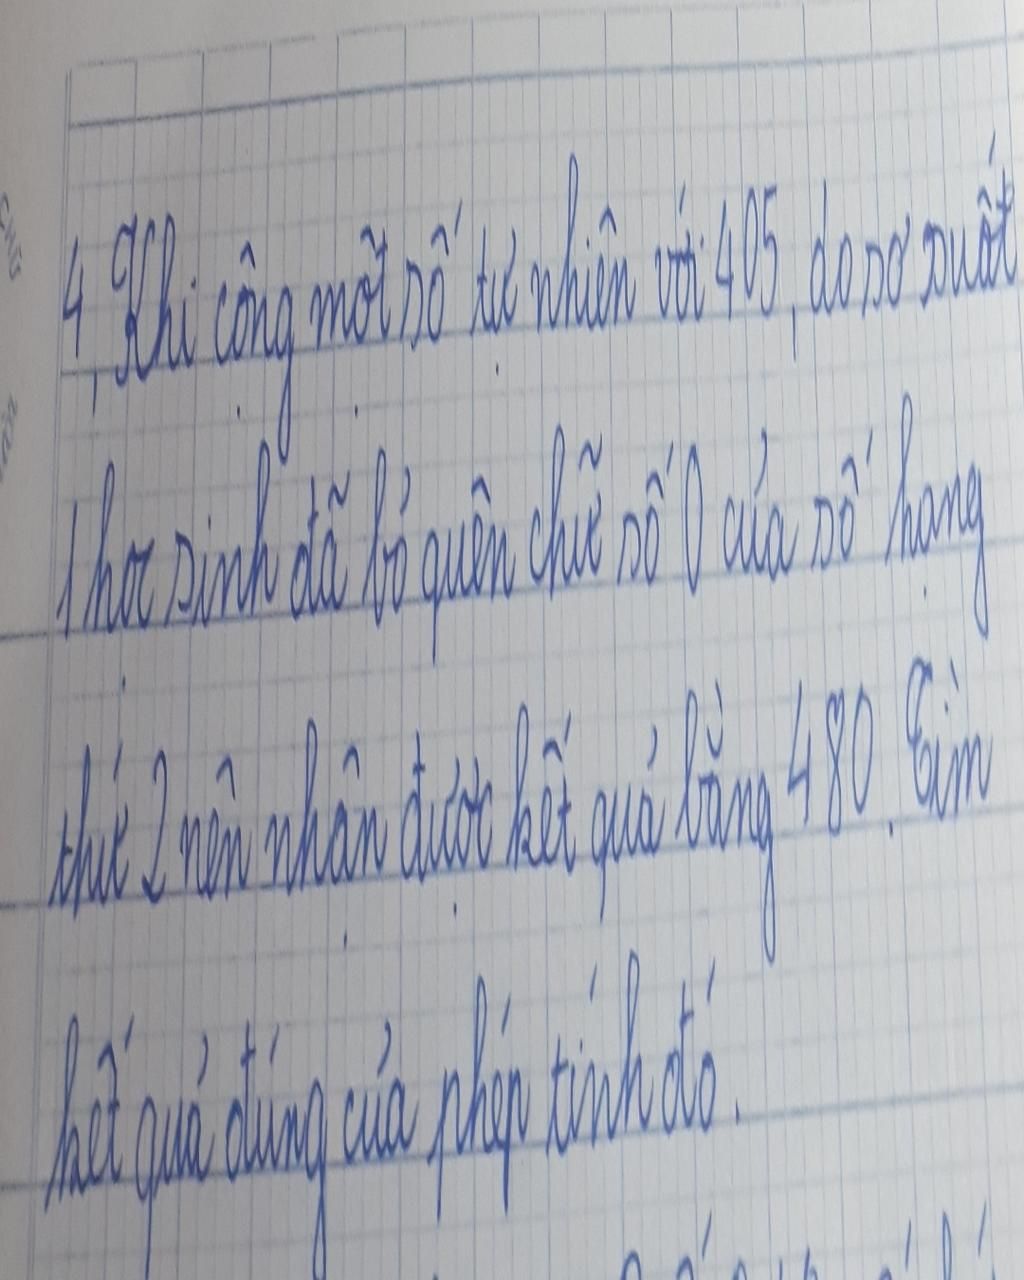 4, Khi cộng một số tự nhiên với 405, do sơ suất
1 học sinh đã bỏ quên chữ số 0 của số hạng
thứ 2 nên nhận được kết quả bằng 480. Tìm
kết quả đúng của phép tính đó.